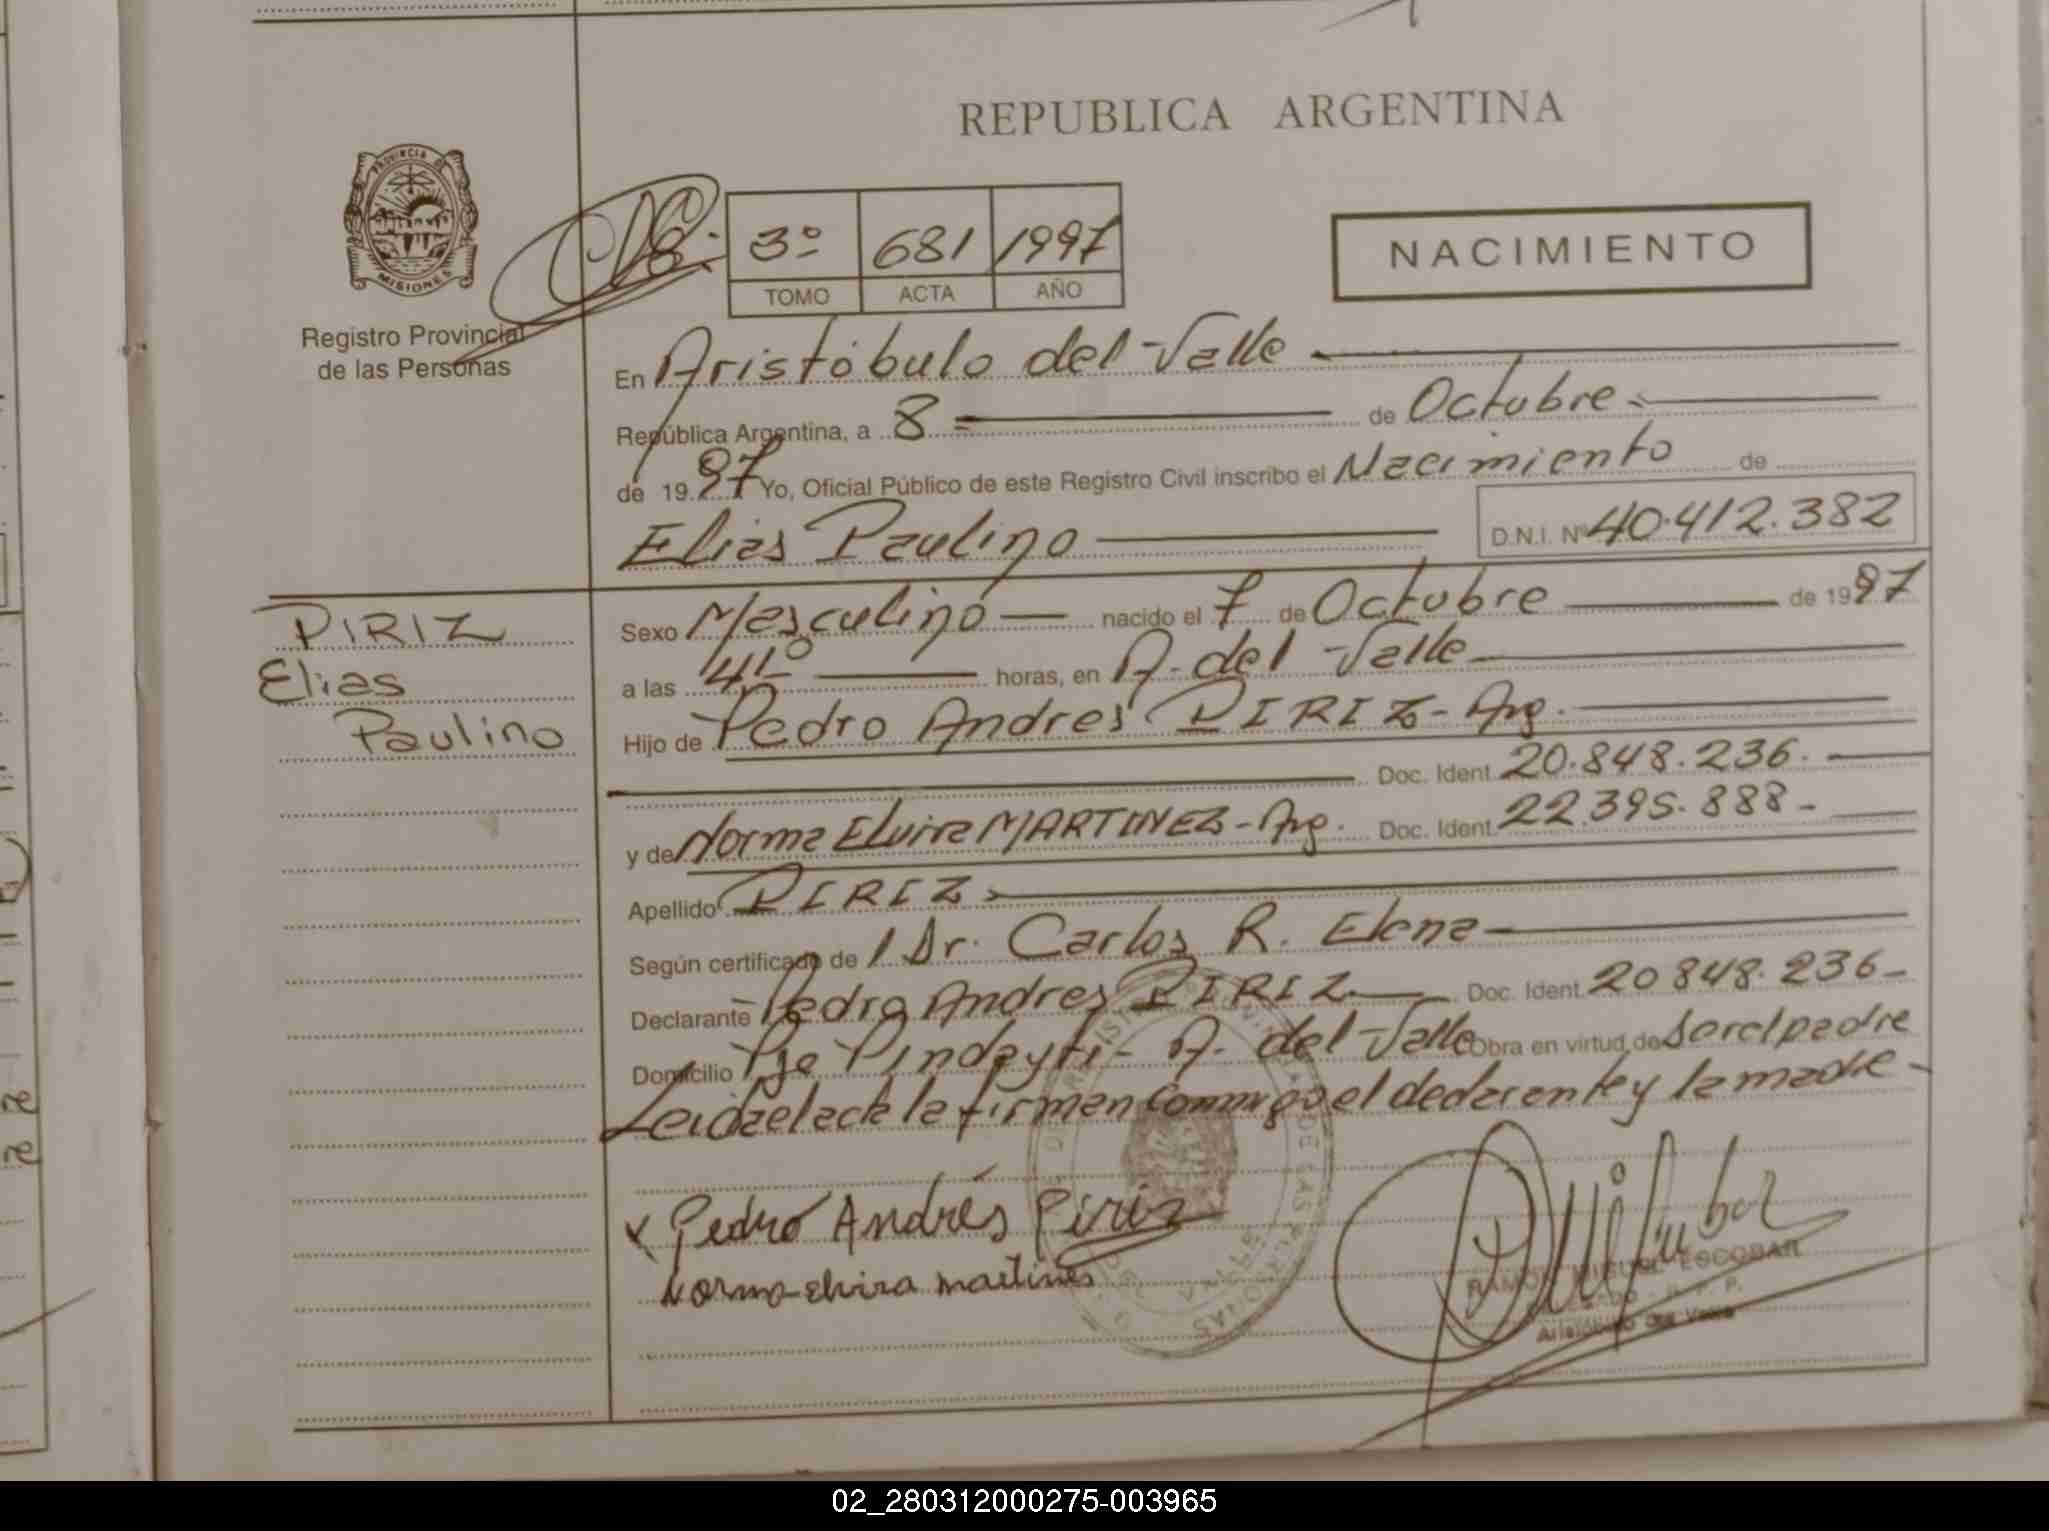 REPUBLICA ARGENTINA
PROVINCIA DE
MISIONES
Registro Provincial
de las Personas
3º 681 1997
TOMO ACTA AÑO
NACIMIENTO
En Aristóbulo del Valle
República Argentina, a 8 de Octubre
de 1997 Yo, Oficial Público de este Registro Civil inscribo el Nacimiento de
Elias Paulino D.N.I. Nº 40.412.382
PIRIZ
Elias
Paulino
Sexo Masculino nacido el 7 de Octubre de 1997
a las horas, en A. del Valle
Hijo de Pedro Andres PIRIZ - Arg.
Doc. Ident. 20.848.236.
y de Norma Elvira MARTINEZ - Arg. Doc. Ident. 22.395.888-
Apellido PIRIZ
Según certificado de Dr. Carlos R. Elena
Declarante Pedro Andres PIRIZ Doc. Ident. 20848.236-
Domicilio Pje Pindayti - A. del Valle Obra en virtud de Ser el padre
Leida el acta la firman conmigo el declarante y la madre -
x Pedro Andrés Piriz
Norma elvira martines
RAMON MIGUEL ESCOBAR
Aristóbulo del Valle
02_280312000275-003965